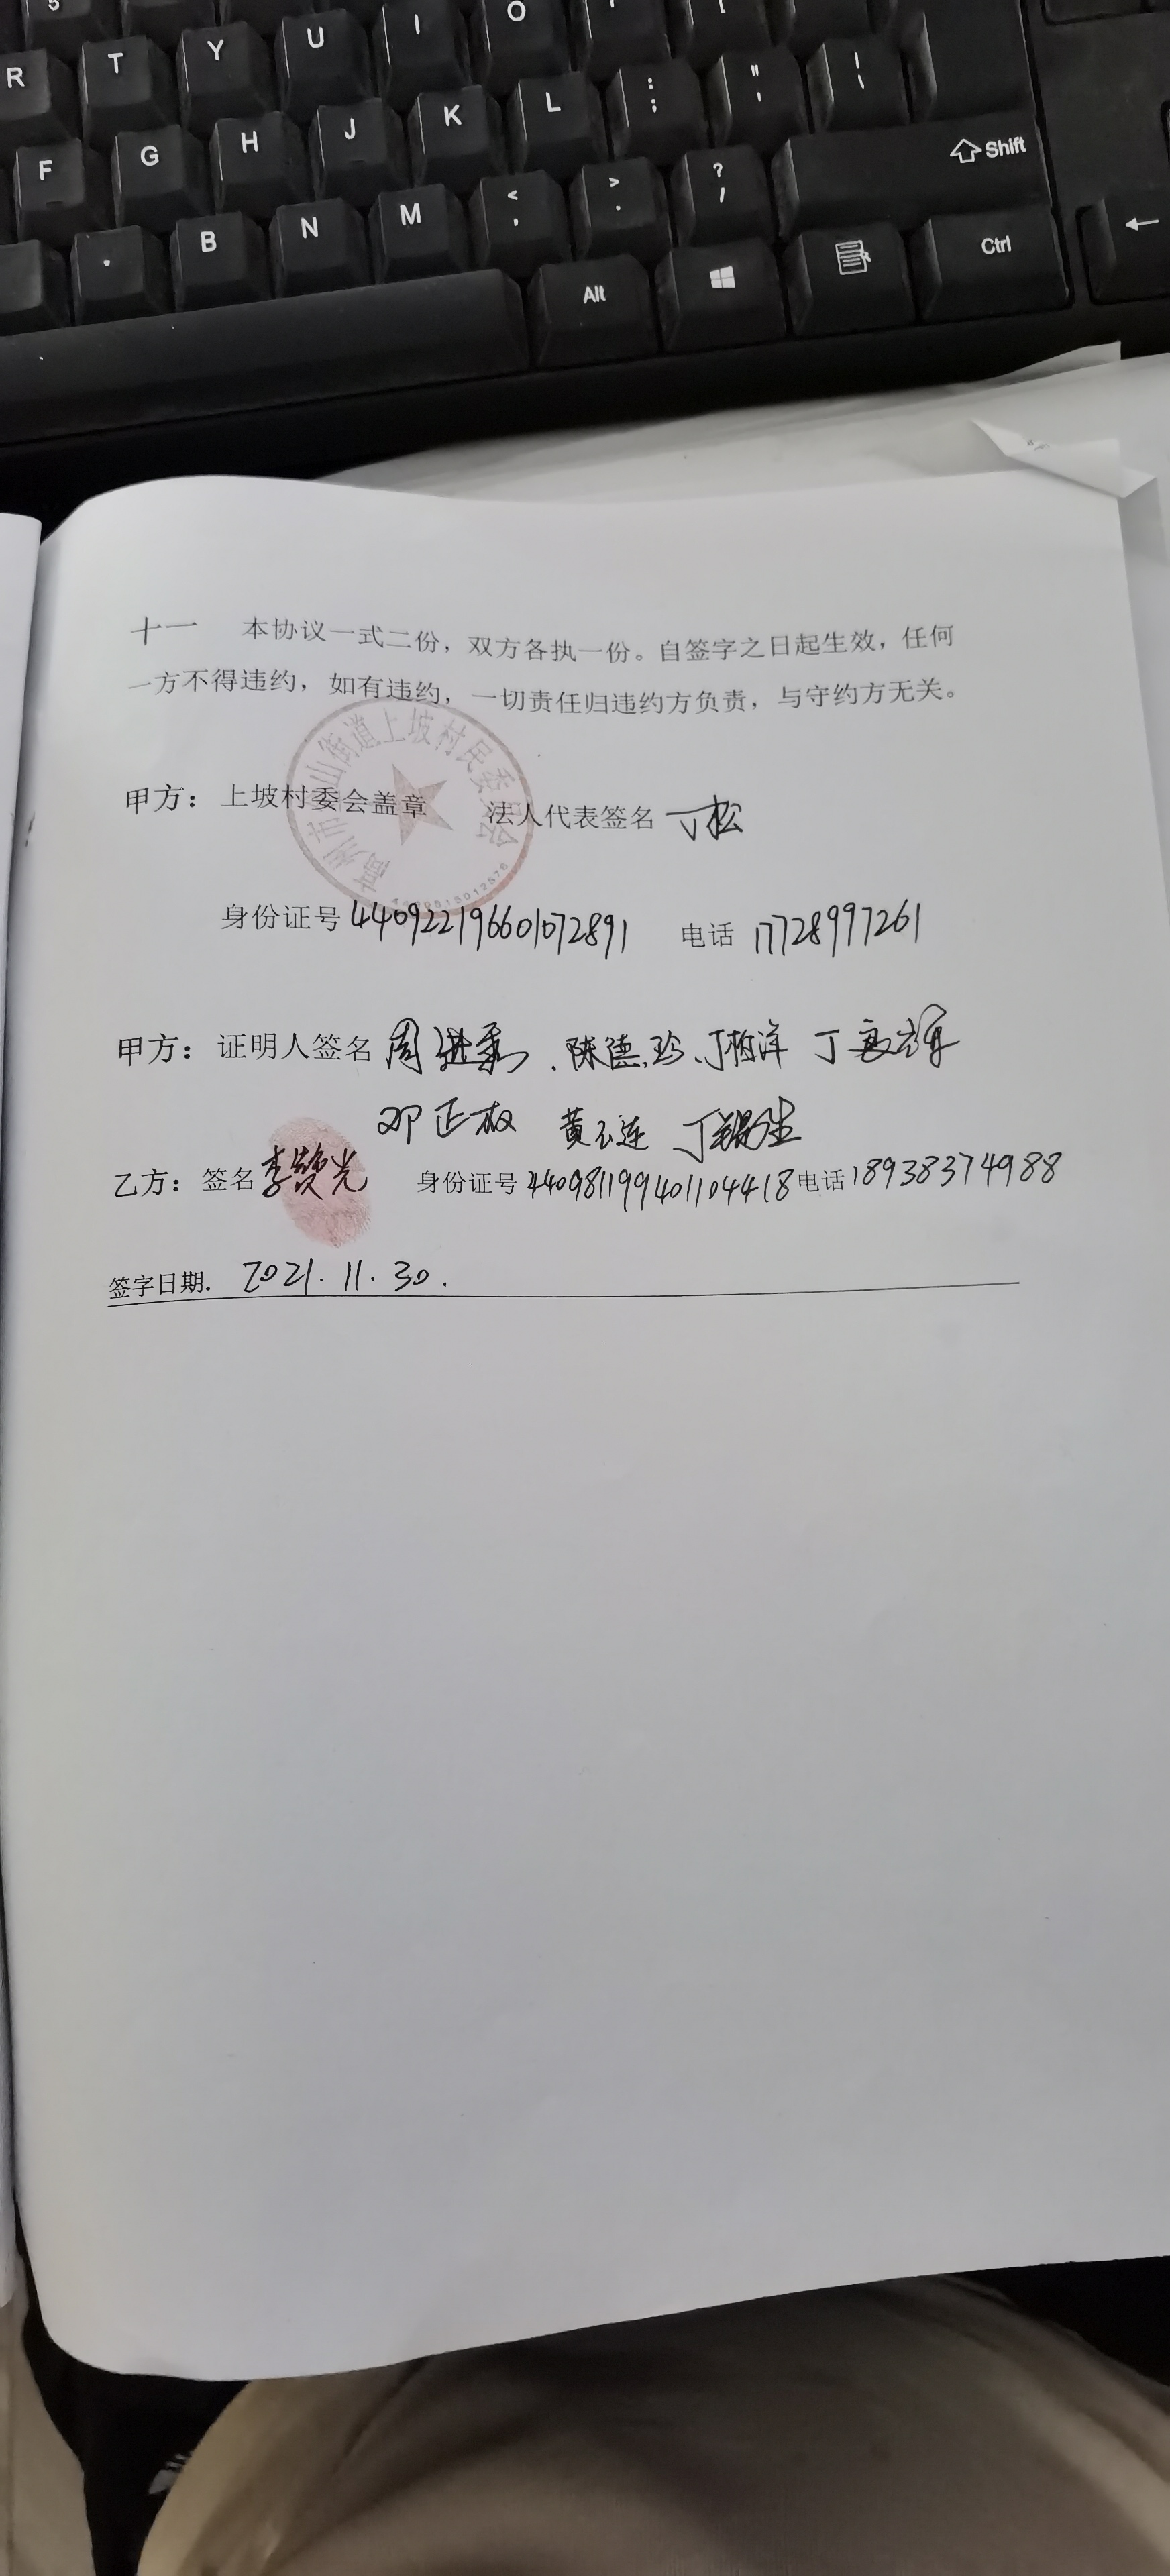 5
O
R T Y U I
F G H J K L : ; " ' | \
B N M < , > . ? / Shift
Alt Ctrl
十一 本协议一式二份，双方各执一份。自签字之日起生效，任何
一方不得违约，如有违约，一切责任归违约方负责，与守约方无关。
山街道上坡村民委员会
甲方：上坡村委会盖章 法人代表签名 丁松
身份证号 440922196601072891 电话 17728997261
甲方：证明人签名 周进 、陈德珍、丁 洋 丁
邓正权 黄 连 丁锡生
乙方：签名 李 光 身份证号 440981199401104418 电话 18938374988
签字日期. 2021.11.30.